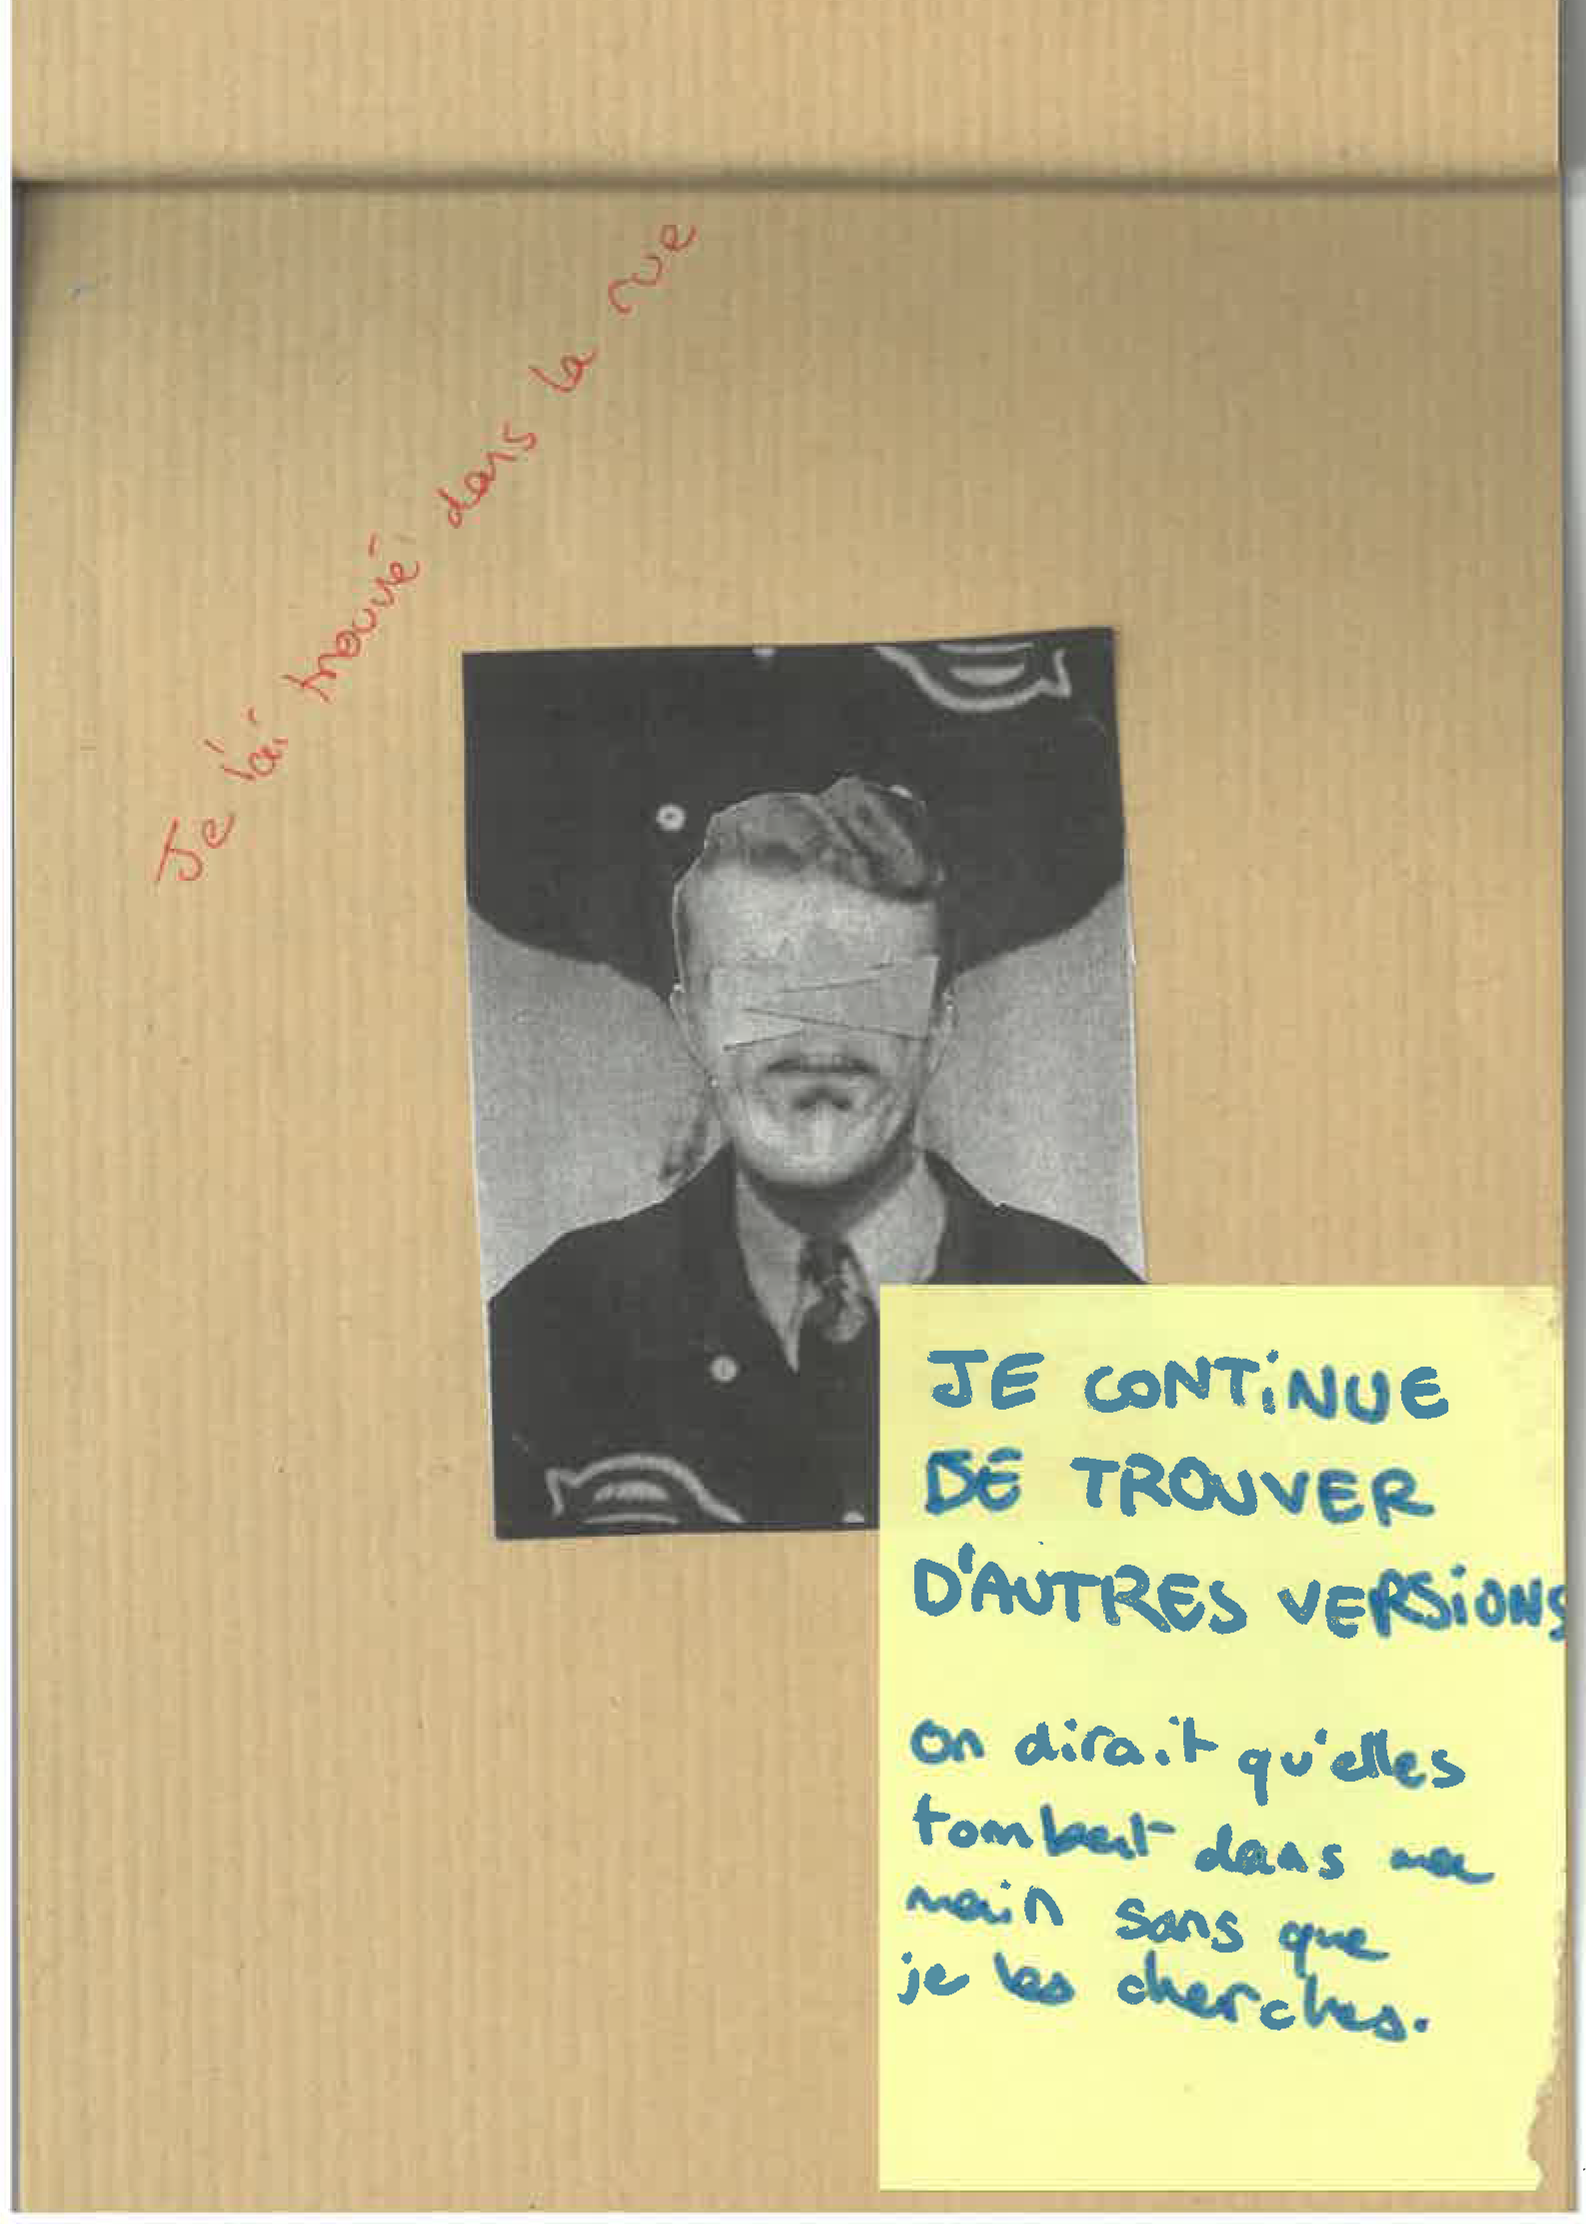 Je l'ai trouvé dans la rue
JE CONTiNUE
DE TROUVER
D'AUTRES VERSiONS
on dirait qu'elles
tombent dans ma
main sans que
je les cherches.